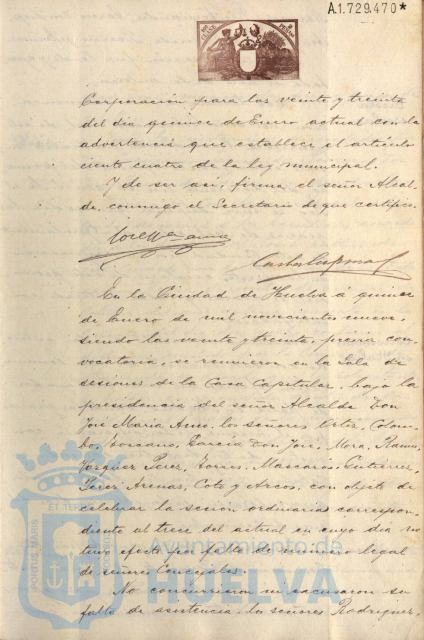 A.1.729.470*
Corporación para las veinte y treinta
del día quince de Enero actual con la
advertencia que establece el artículo
ciento cuatro de la ley municipal.
Y de ser así, firma el señor Alcal-
de, conmigo el Secretario de que certifico.
En la Ciudad de Huelva á quince
de Enero de mil novecientos nueve,
siendo las veinte y treinta, previa con-
vocatoria, se reunieron en la Sala de
sesiones de la Casa Capitular, bajo la
presidencia del señor Alcalde Don
José María Amo, los señores Ortiz, Colom-
bo, Toscano, García Don José, Mora, Ramos,
Vazquez Perez, Torres, Mascarós, Gutierrez,
Perez Arenas, Coto y Arcos, con objeto de
celebrar la sesión ordinaria correspon-
diente al trece del actual en cuyo día no
tuvo efecto por falta de número legal
de señores Concejales.
No concurrieron ni excusaron su
falta de asistencia, los señores Rodriguez,
PORTUS MARIS
ET TERRE
Ayuntamiento de
HUELVA